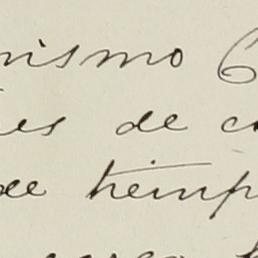 nismo C
es de c
de temp